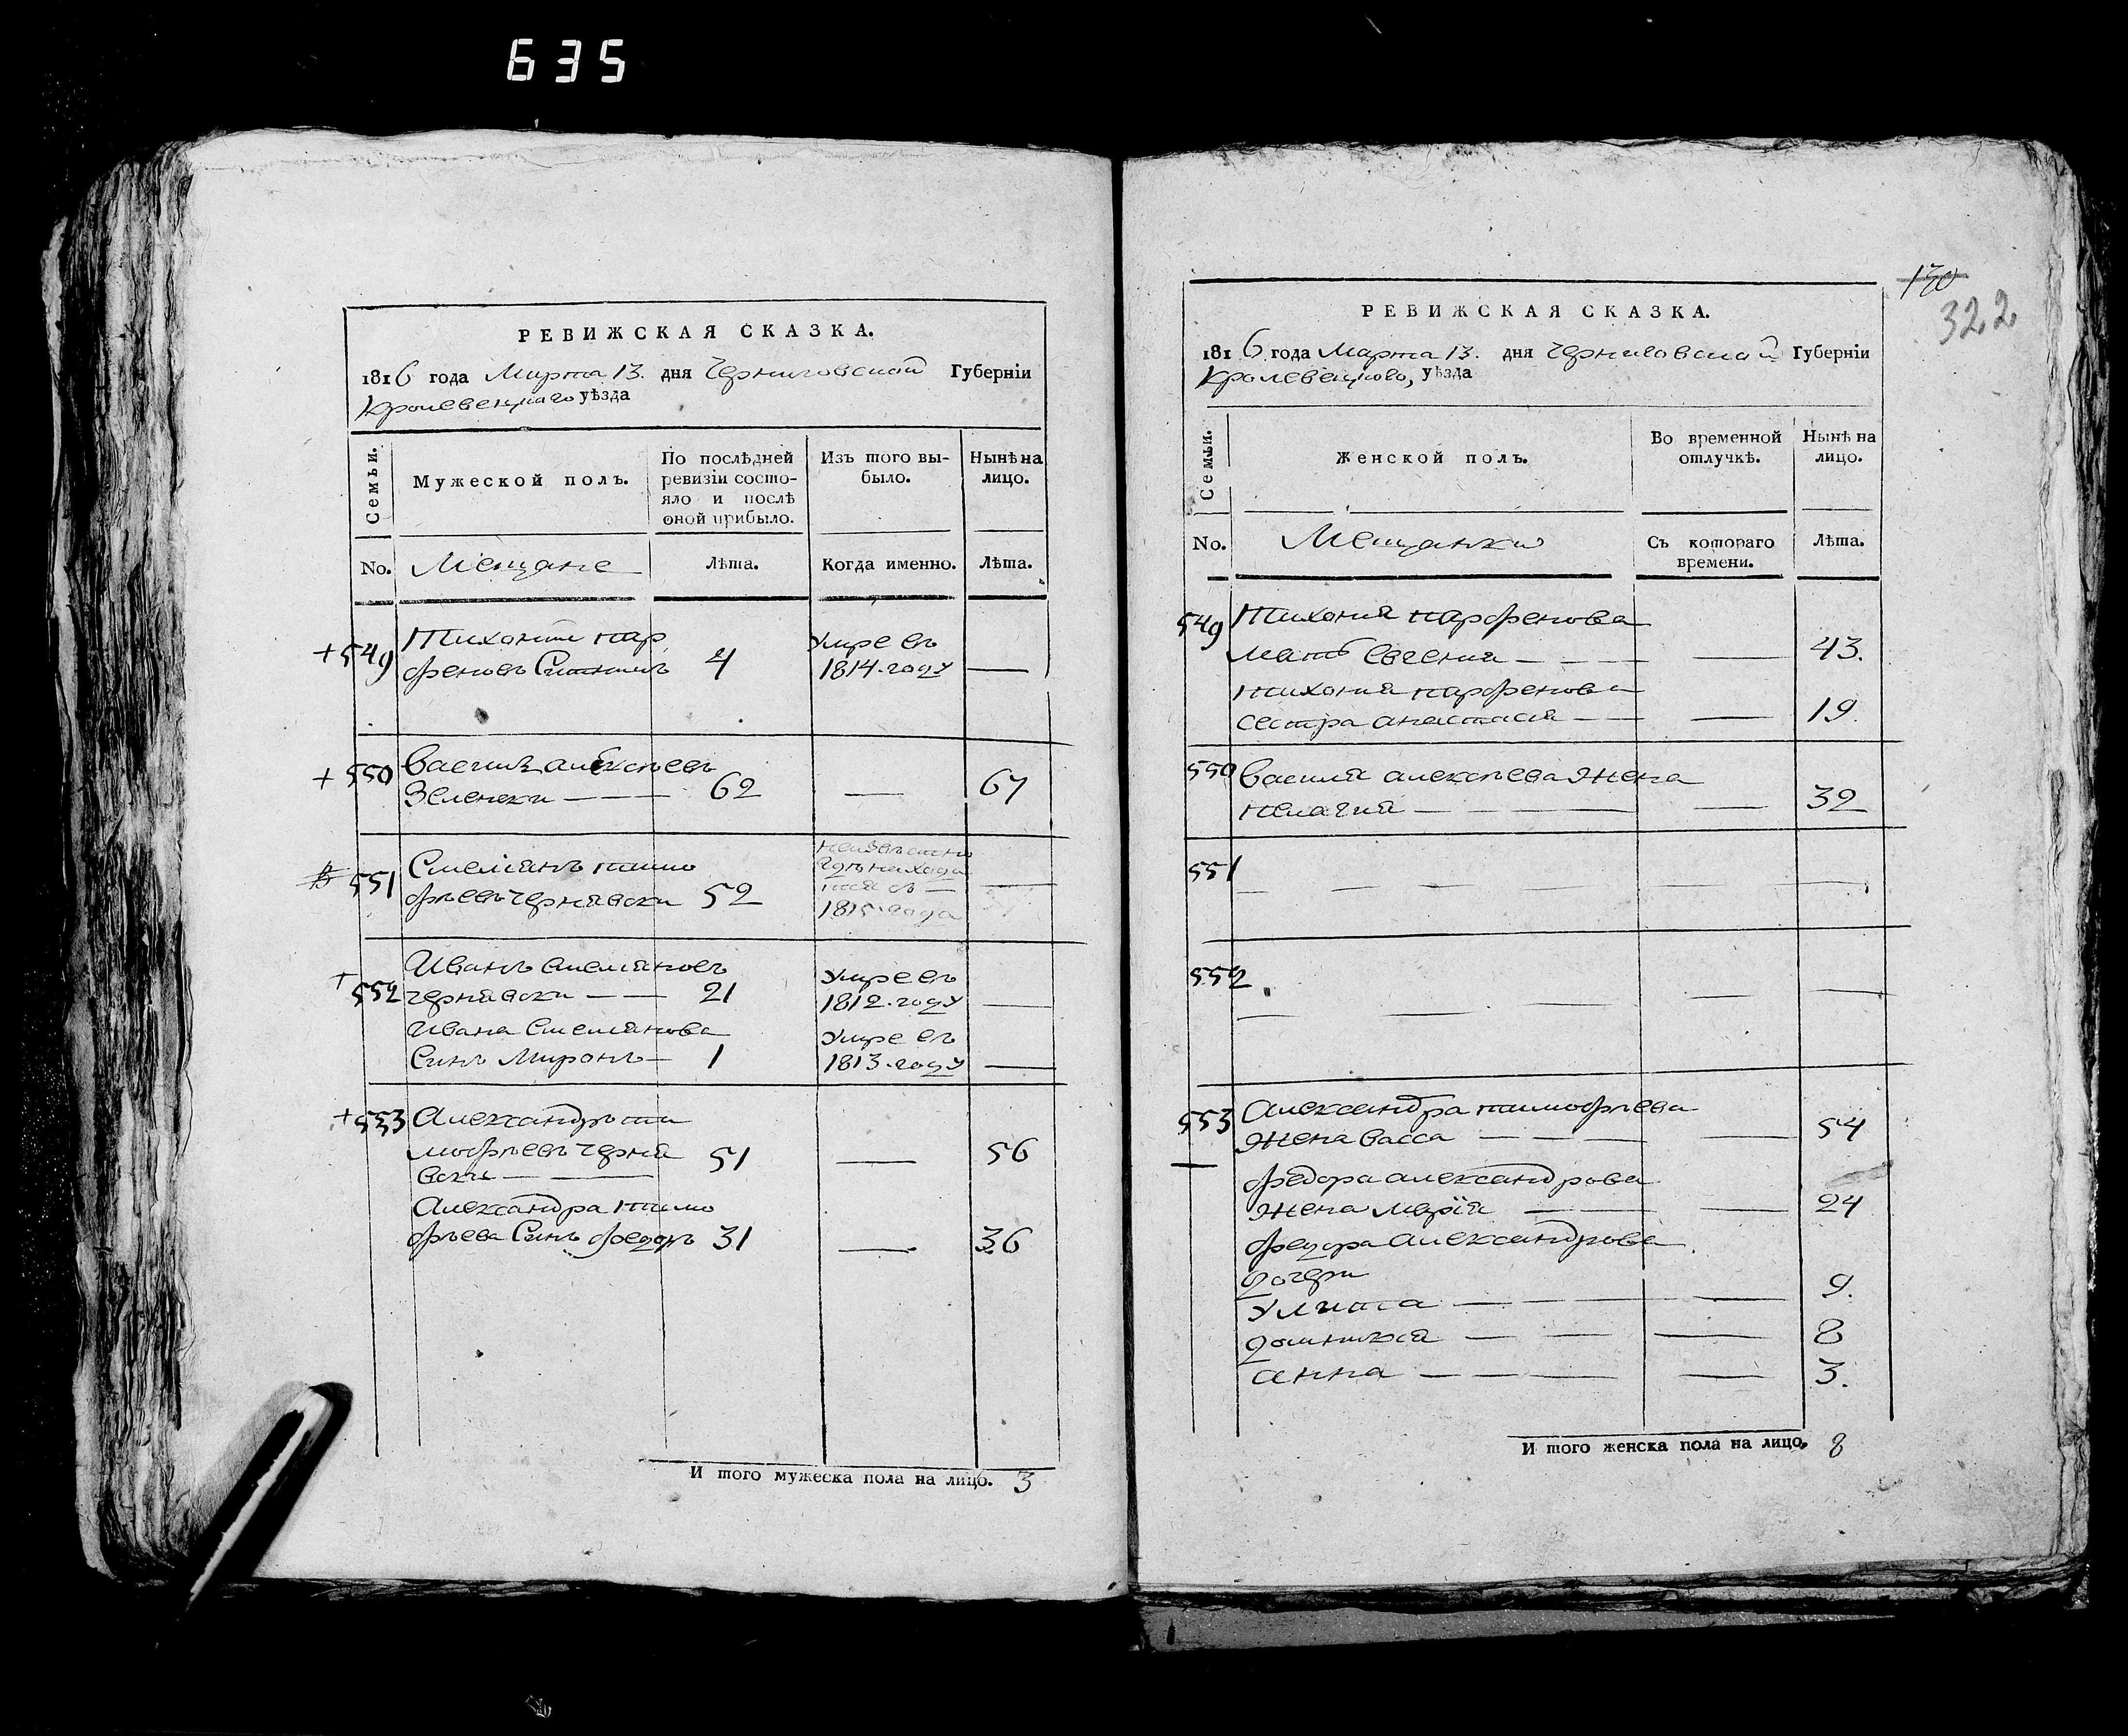 635
РЕВИЖСКАЯ СКАЗКА.
1816 года Марта 13. дня Черниговской Губерніи
Кролевецкаго уѣзда
Семьи.
Мужеской полъ.
По послѣдней
ревизіи состо-
яло и послѣ
оной прибыло.
Изъ того вы-
было.
Нынѣ на
лицо.
No. Мещане Лѣта. Когда именно. Лѣта.
+549 Тихонъ пар умре въ
феновъ 4 1814. году —
+550 Василь алексѣевъ
Зеленски — — 62 — 67
неизвѣстно
551 Емелянъ тимо где находи
фѣевъ чернявски 52 тся съ —
1815. года
+552 Иванъ емеляновъ умре въ
чернявски — — 21 1812. году —
Ивана Емелянова умре въ
Синъ Миронъ — 1 1813. году —
+553 Александръ ти
мофѣевъ черня 51 — 56
вски — —
Александра тимо
фѣева Синъ Федоръ 31 — 36
И того мужеска пола на лицо. 3
130
322
РЕВИЖСКАЯ СКАЗКА.
1816 года Марта 13. дня Черниговской Губерніи
Кролевецкого, уѣзда
Семьи.
Женской полъ.
Во временной
отлучкѣ.
Нынѣ на
лицо.
No. Мещанки Съ котораго
времени. Лѣта.
549 Тихония парфенова
мать Евгения — — — — 43.
тихония парфенова
сестра анастасия — — — 19.
550 Василия алексѣева жена
пелагия — — — — 32
551 — — — — — —
552 — — — — — —
553 Александра тимофѣева
жена васса — — — — 54
федора александрова
жена марїя — — — 24
федора александрова
дочери
улита — — — — 9.
домникия — — — 8
анна — — — — 3.
И того женска пола на лицо. 8